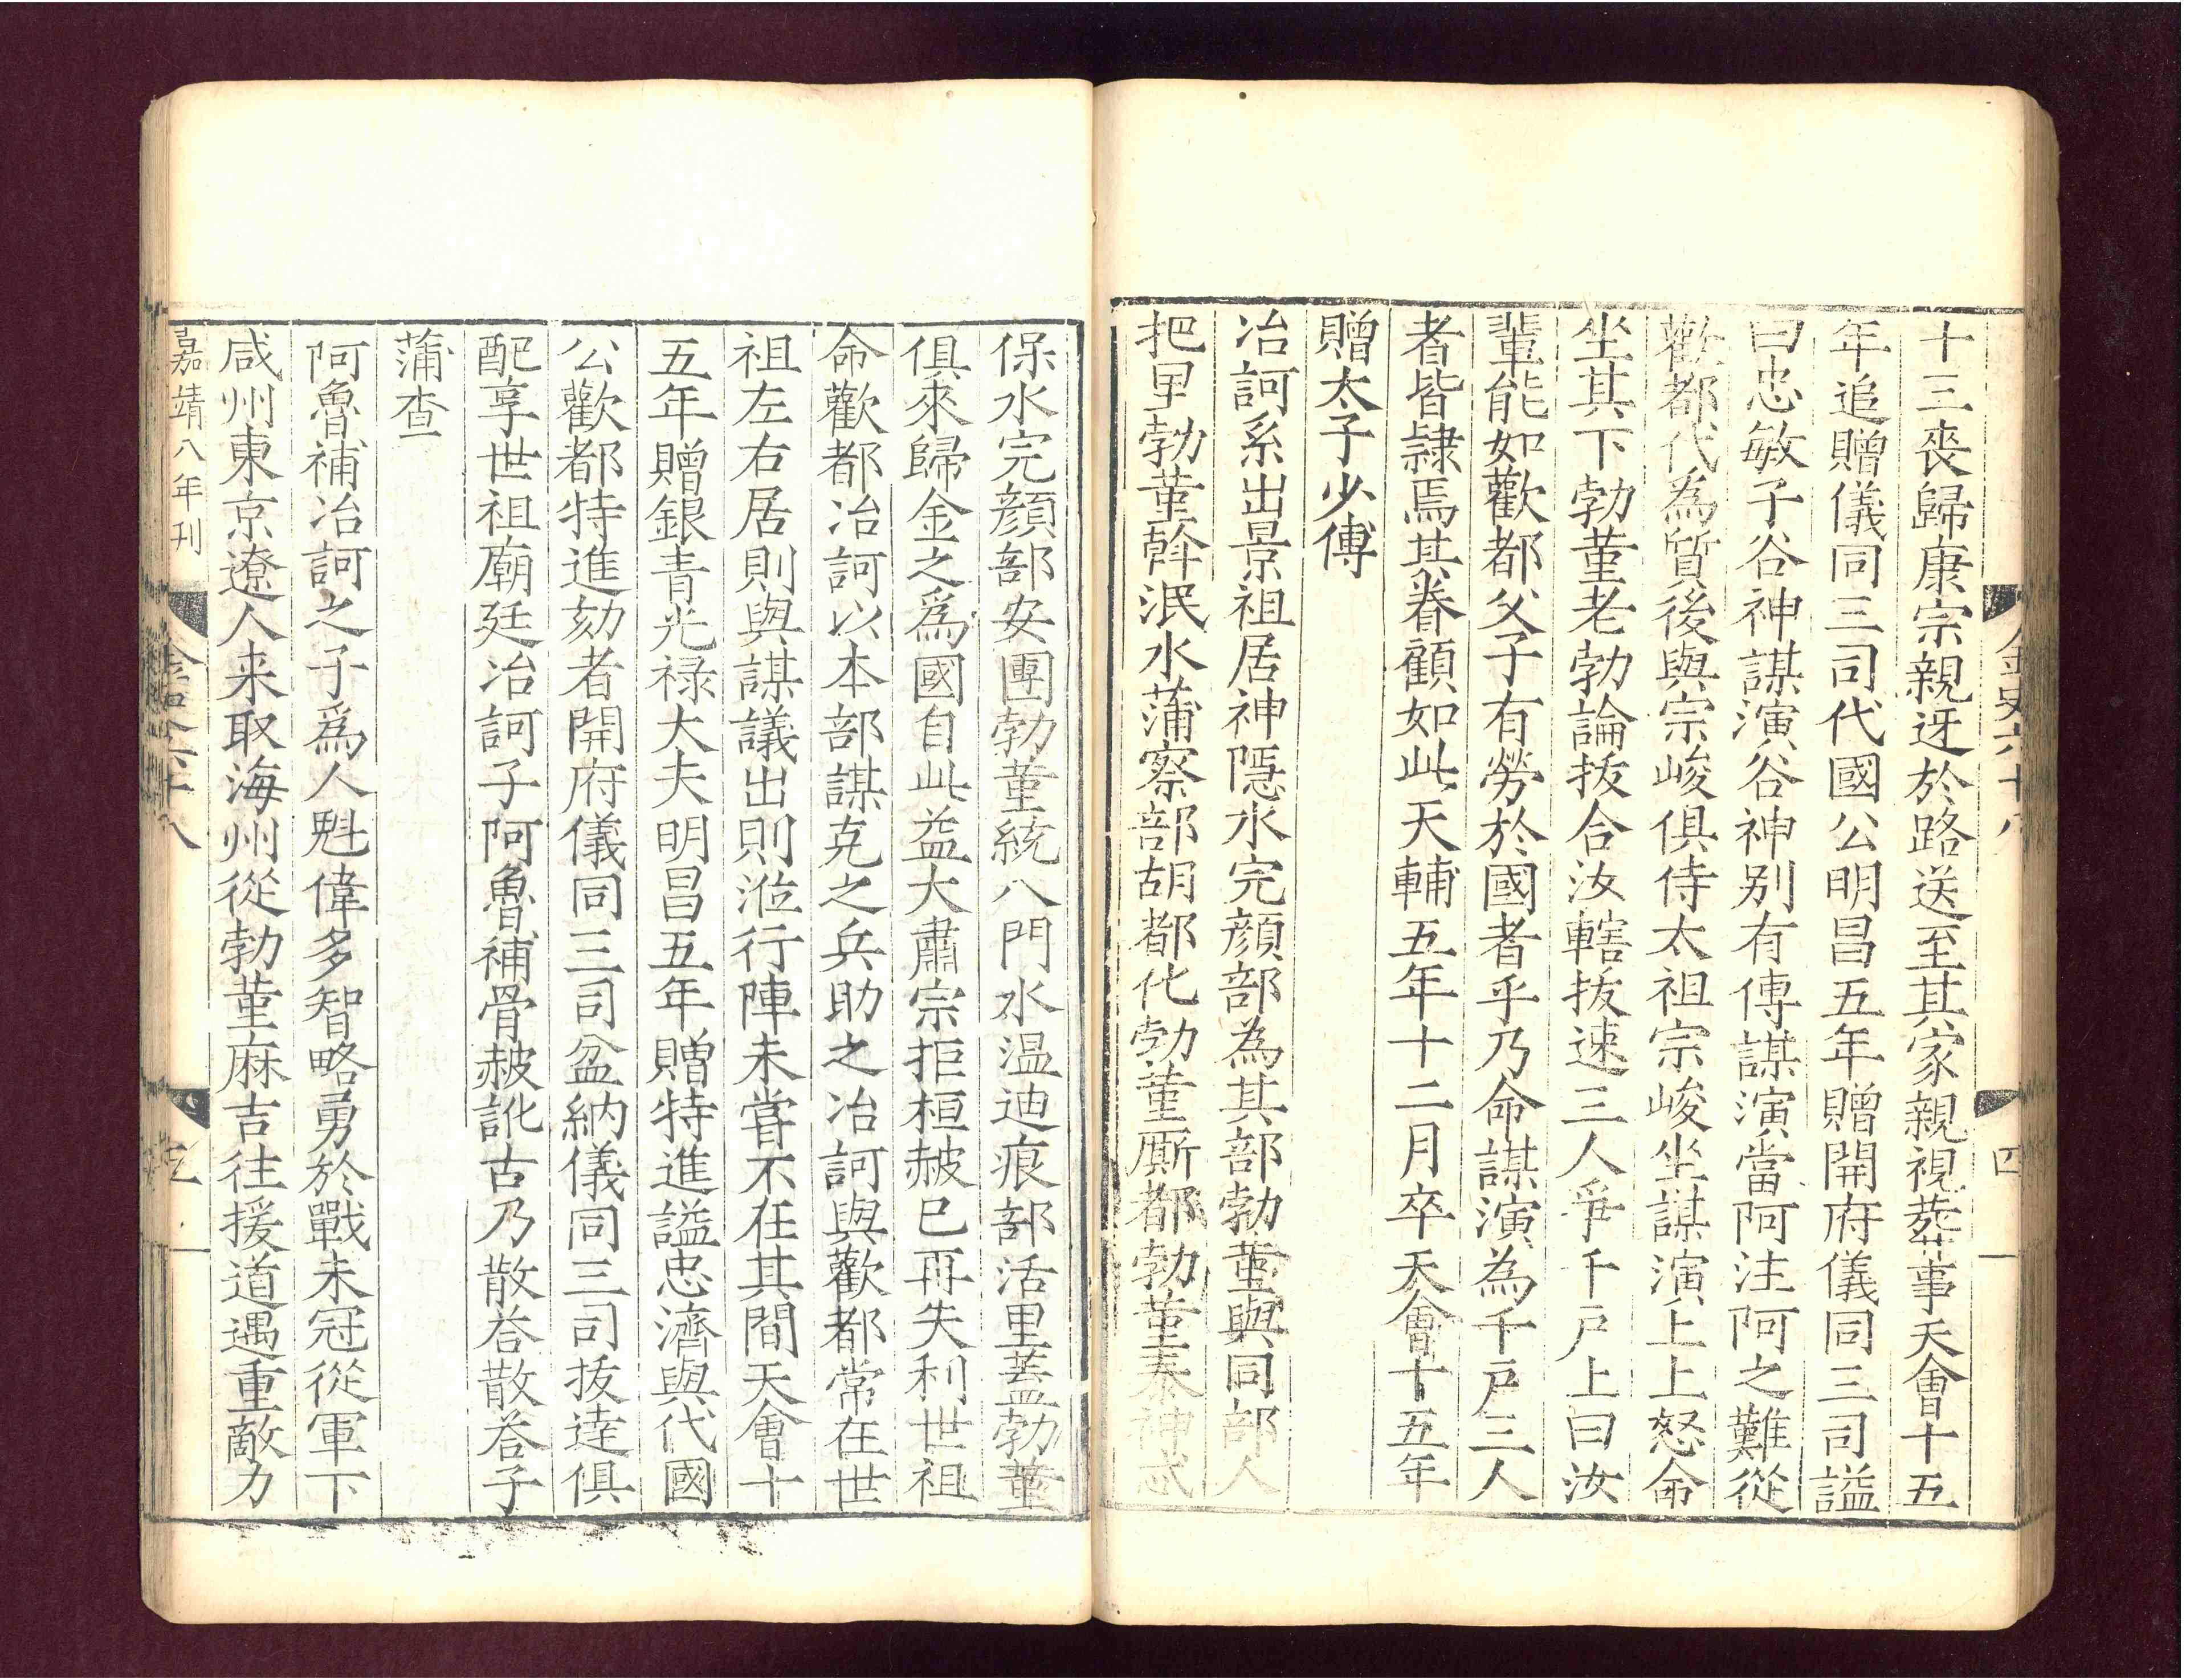 十三喪歸康宗親迓於路送至其家親視葬事天會十五
年追贈儀同三司代國公明昌五年贈開府儀同三司謚
曰忠敏子谷神謀演谷神别有傳謀演當阿注阿之難從
歡都代為質後與宗峻俱侍太祖宗峻坐謀演上上怒命
坐其下勃菫老勃論拔合汝轄拔速三人爭千戸上曰汝
輩能如歡都父子有勞於國者乎乃命謀演為千戸三人
者皆隷焉其眷顧如此天輔五年十二月卒天會十五年
贈太子少傅
冶訶系出景祖居神隱水完顔部為其部勃菫與同部人
把里勃菫斡泯水蒲察部胡都化勃菫厮都勃菫泰神忒
保水完顔部安團勃菫統八門水温迪痕部活里蓋勃菫
俱來歸金之爲國自此益大肅宗拒桓赧已再失利世祖
命歡都冶訶以本部謀克之兵助之冶訶與歡都常在世
祖左右居則與謀議出則涖行陣未嘗不在其間天會十
五年贈銀青光禄大夫明昌五年贈特進謚忠濟與代國
公歡都特進劾者開府儀同三司盆納儀同三司拔達俱
配享世祖廟廷冶訶子阿魯補骨赧訛古乃散荅散荅子
蒲查
阿魯補冶訶之子爲人魁偉多智略勇於戰未冠從軍下
咸州東京遼人来取海州從勃菫麻吉往援道遇重敵力
嘉靖八年刊
金史六十八
四